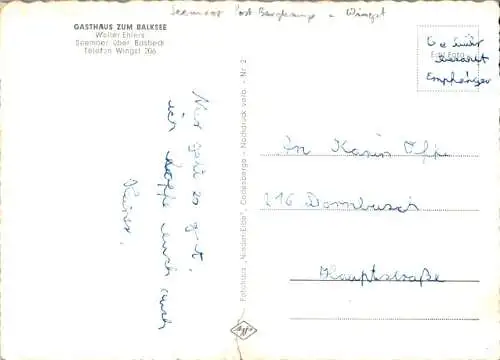 Seemoor Post Berglamp - Wingst
GASTHAUS ZUM BALKSEE
Walter Ehlers
Seemoor über Basbeck
Telefon Wingst 206
Mir geht es gut,
ich hoffe euch auch
Rainer.
Fotohaus „Niederelbe", Cadenberge - Nachdruck verb. - Nr. 2
Agfa
Empfänger
An Karin
216 Dornbusch
Hauptstraße